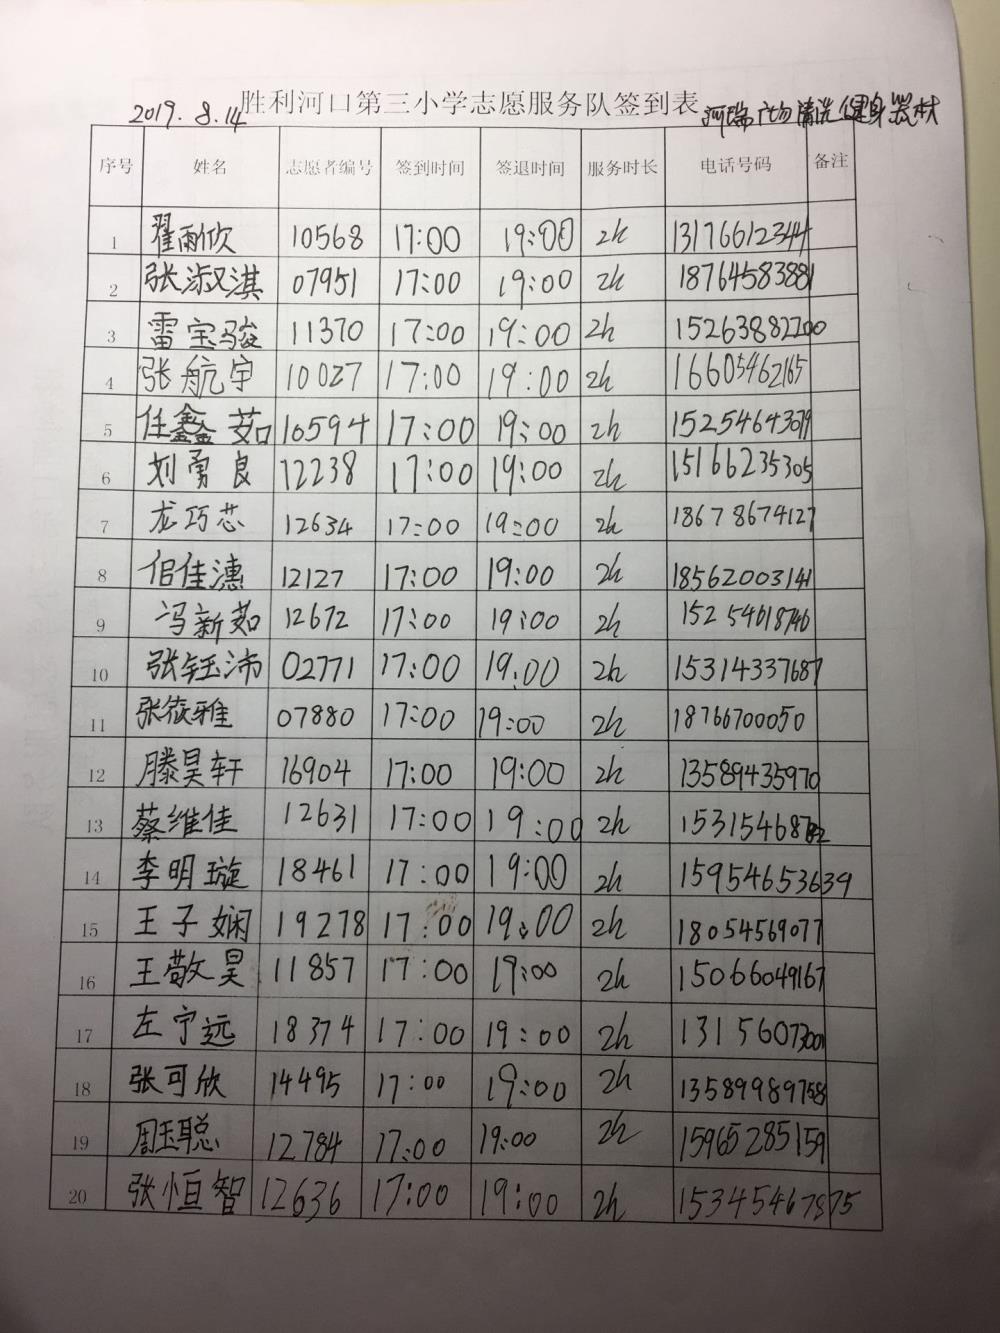 胜利河口第三小学志愿服务队签到表
2019.8.14 河瑞广场清洗健身器材
序号 姓名 志愿者编号 签到时间 签退时间 服务时长 电话号码 备注
1 翟雨欣 10568 17:00 19:00 2h 13176612344
2 张淑淇 07951 17:00 19:00 2h 18764583881
3 雷宝骏 11370 17:00 19:00 2h 15263882700
4 张航宇 10027 17:00 19:00 2h 16605462165
5 任鑫茹 10594 17:00 19:00 2h 15254643079
6 刘勇良 12238 17:00 19:00 2h 15166235305
7 龙巧芯 12634 17:00 19:00 2h 18678674127
8 佀佳潓 12127 17:00 19:00 2h 18562003141
9 冯新茹 12672 17:00 19:00 2h 15254618746
10 张钰沛 02771 17:00 19:00 2h 15314337687
11 张筱雅 07880 17:00 19:00 2h 18766700050
12 滕昊轩 16904 17:00 19:00 2h 13589435970
13 蔡维佳 12631 17:00 19:00 2h
14 李明璇 18461 17:00 19:00 2h 15954653639
15 王子娴 19278 17:00 19:00 2h 18054569077
16 王敬昊 11857 17:00 19:00 2h 15066049167
17 左宁远 18374 17:00 19:00 2h 13156073001
18 张可欣 14495 17:00 19:00 2h 13589989758
19 周玉聪 12784 17:00 19:00 2h 15965285159
20 张恒智 12636 17:00 19:00 2h 15345467875